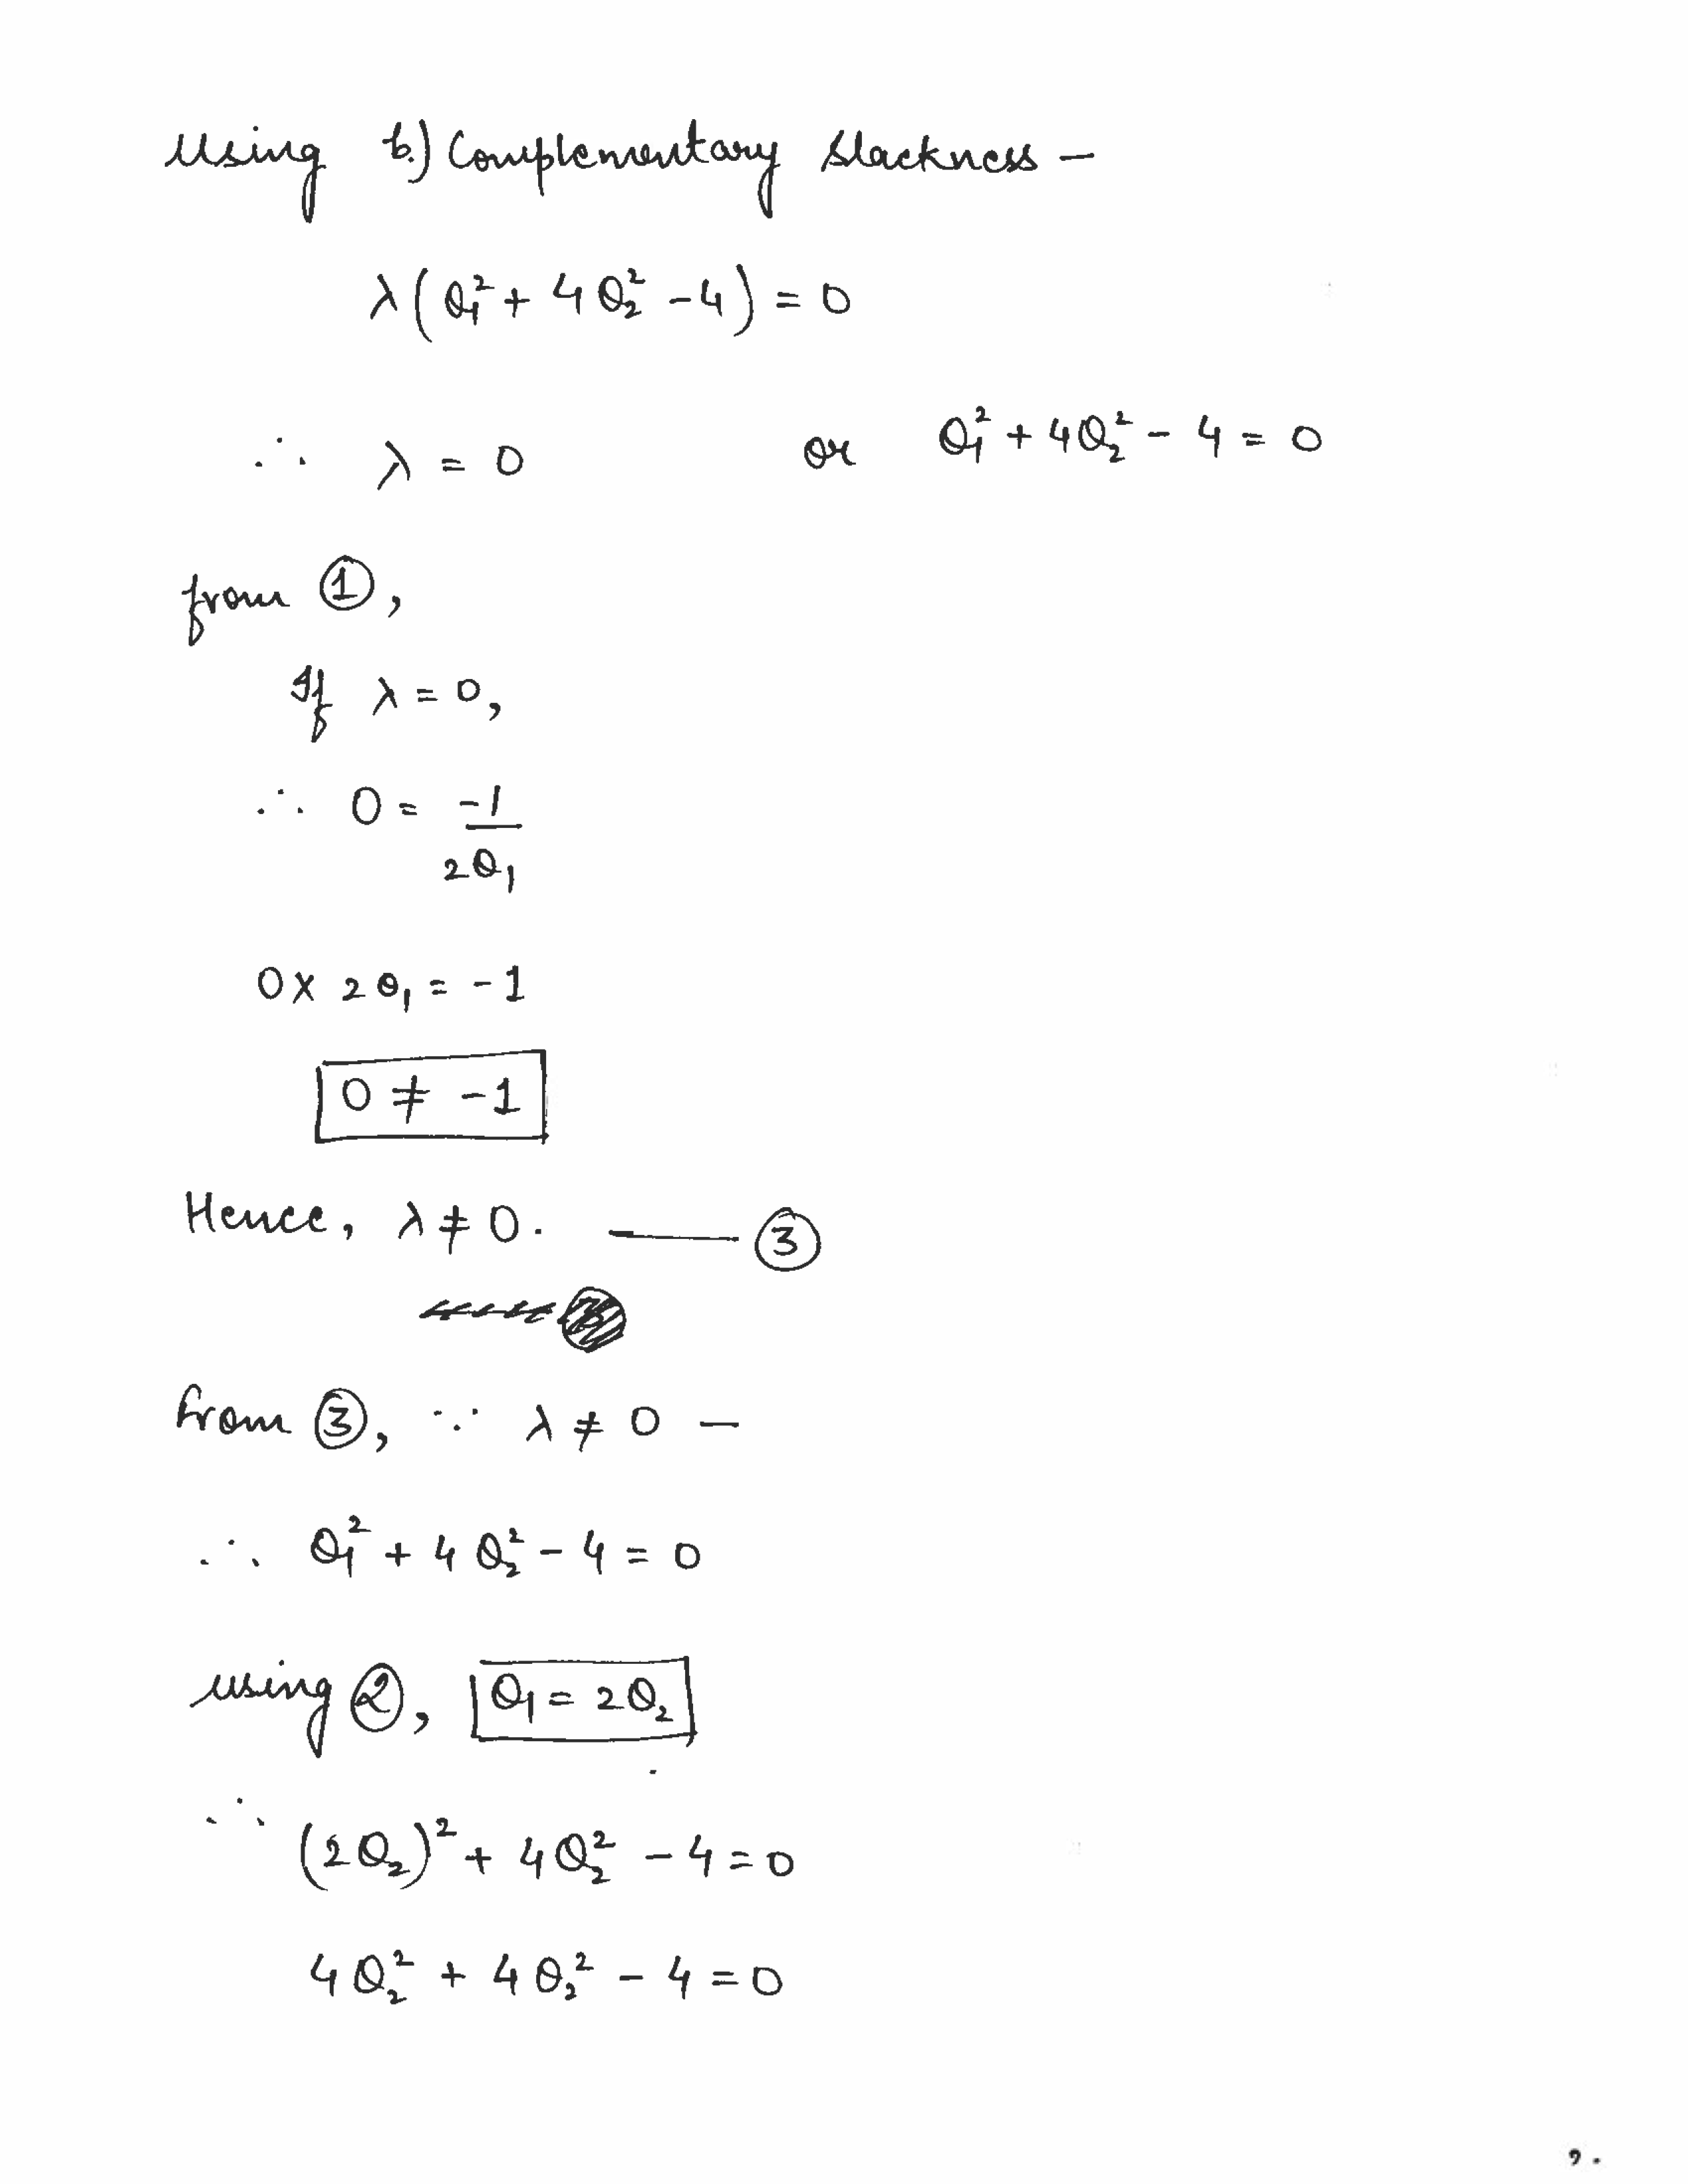 Using b.) Complementary slackness –
λ(θ₁² + 4θ₂² – 4) = 0
∴ λ = 0 or θ₁² + 4θ₂² – 4 = 0
from ①,
If λ = 0,
∴ 0 = -1/2θ₁
0 × 2θ₁ = -1
0 ≠ -1
Hence, λ ≠ 0. —— ③
from ③, ∵ λ ≠ 0 –
∴ θ₁² + 4θ₂² – 4 = 0
using ②, θ₁ = 2θ₂
∴ (2θ₂)² + 4θ₂² – 4 = 0
4θ₂² + 4θ₂² – 4 = 0